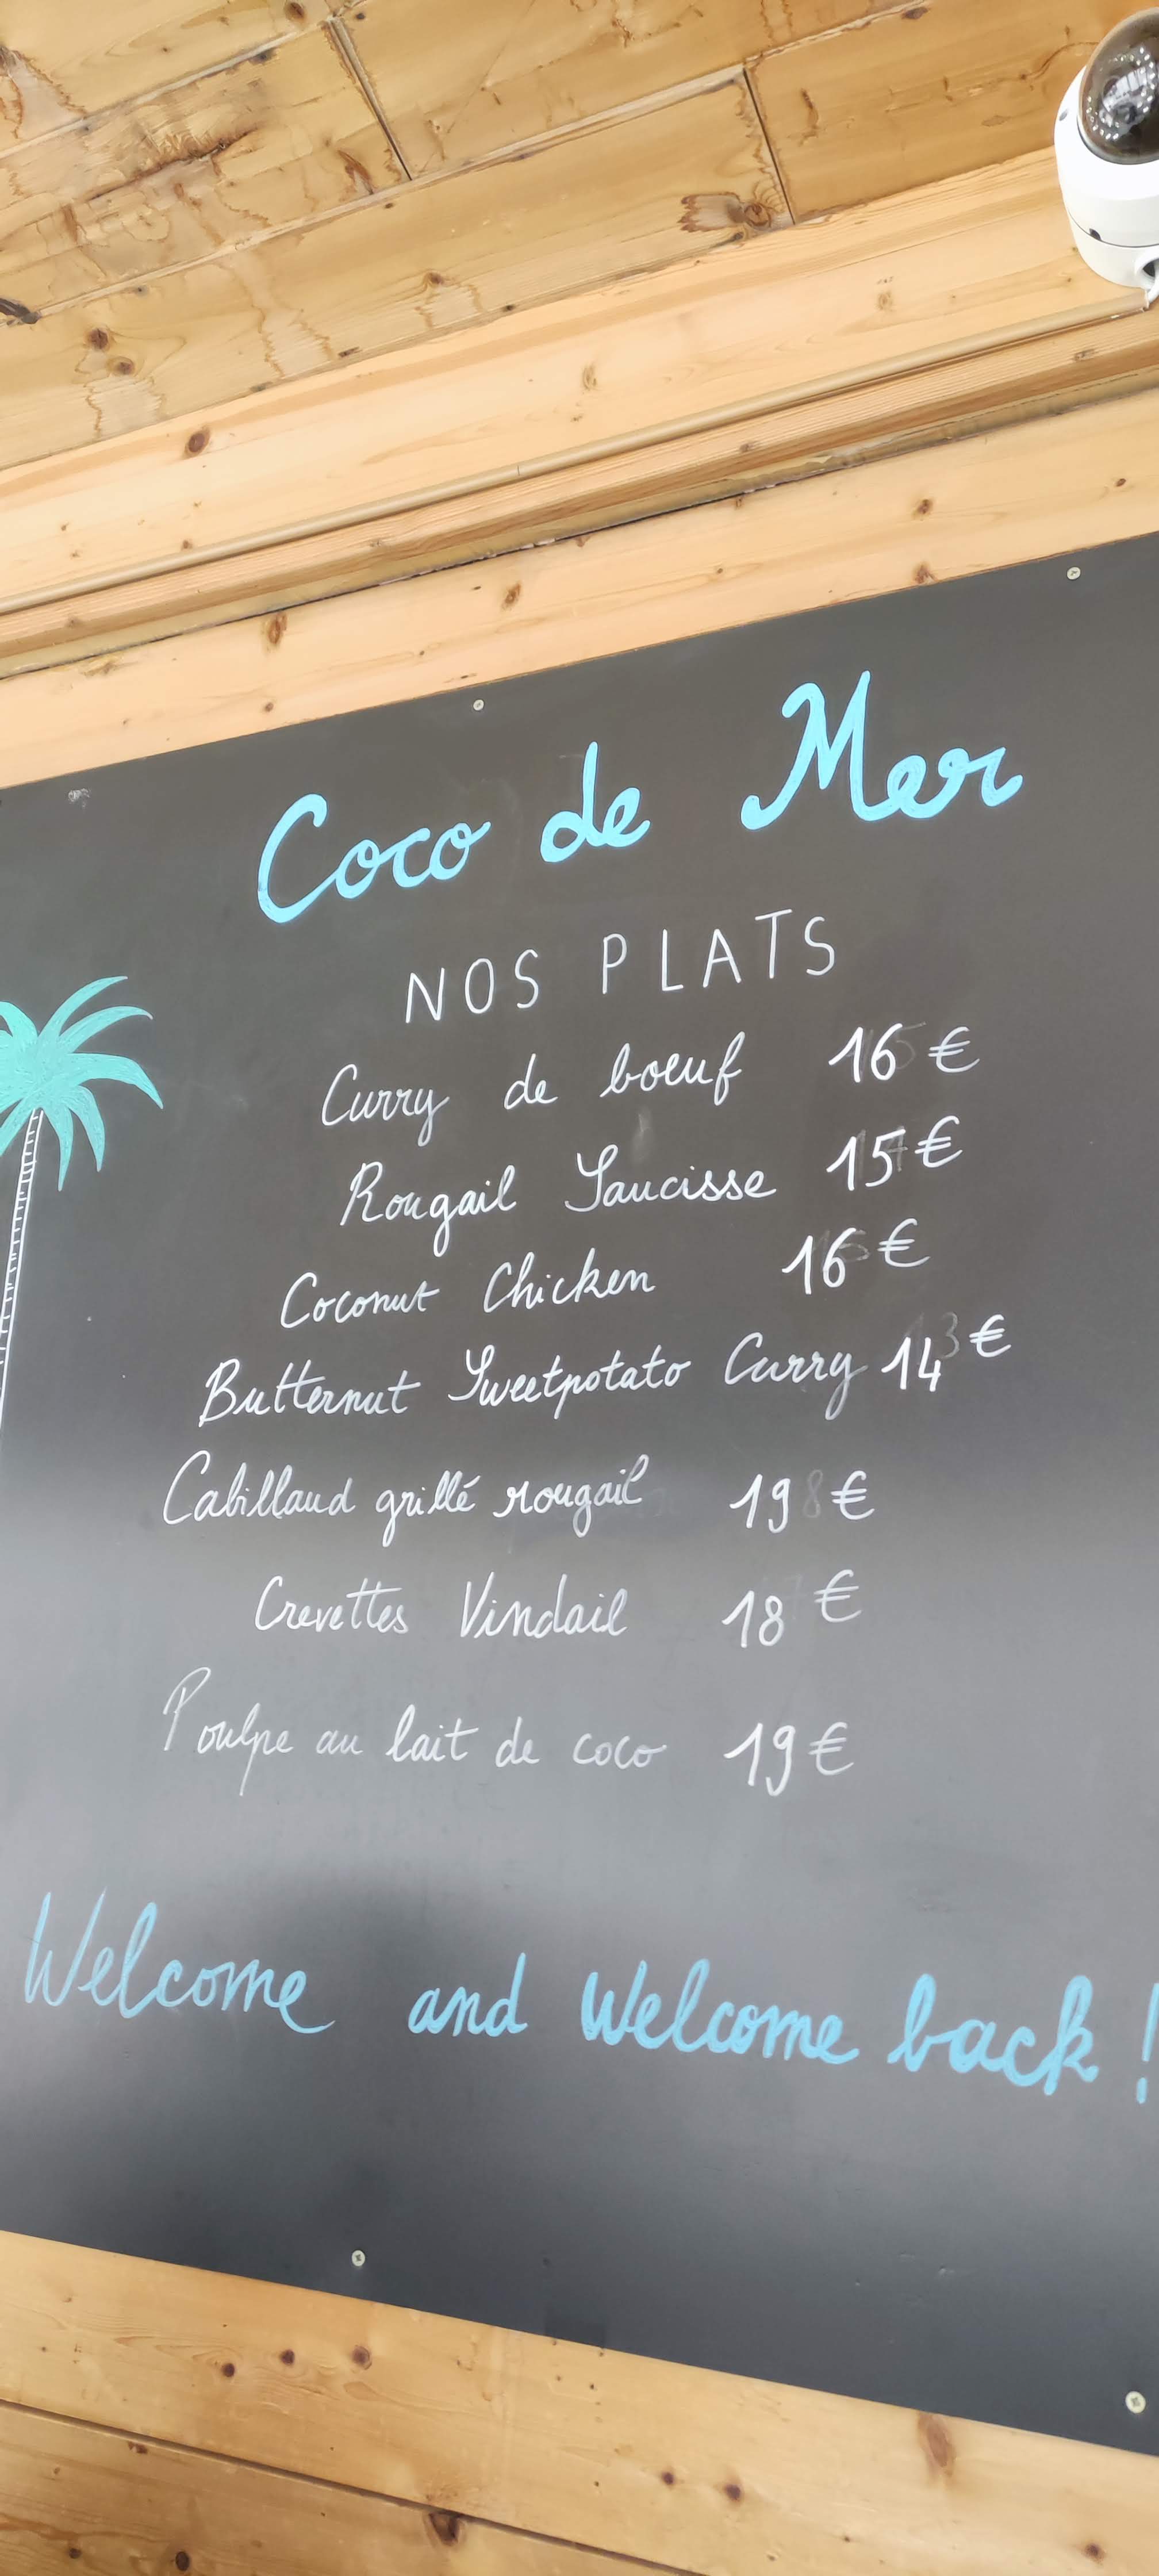 Coco de Mer
NOS PLATS
Curry de boeuf 16 €
Rougail Saucisse 15 €
Coconut Chicken 16 €
Butternut Sweetpotato Curry 14 €
Cabillaud grillé rougail 19 €
Crevettes Vindail 18 €
Poulpe au lait de coco 19 €
Welcome and Welcome back !